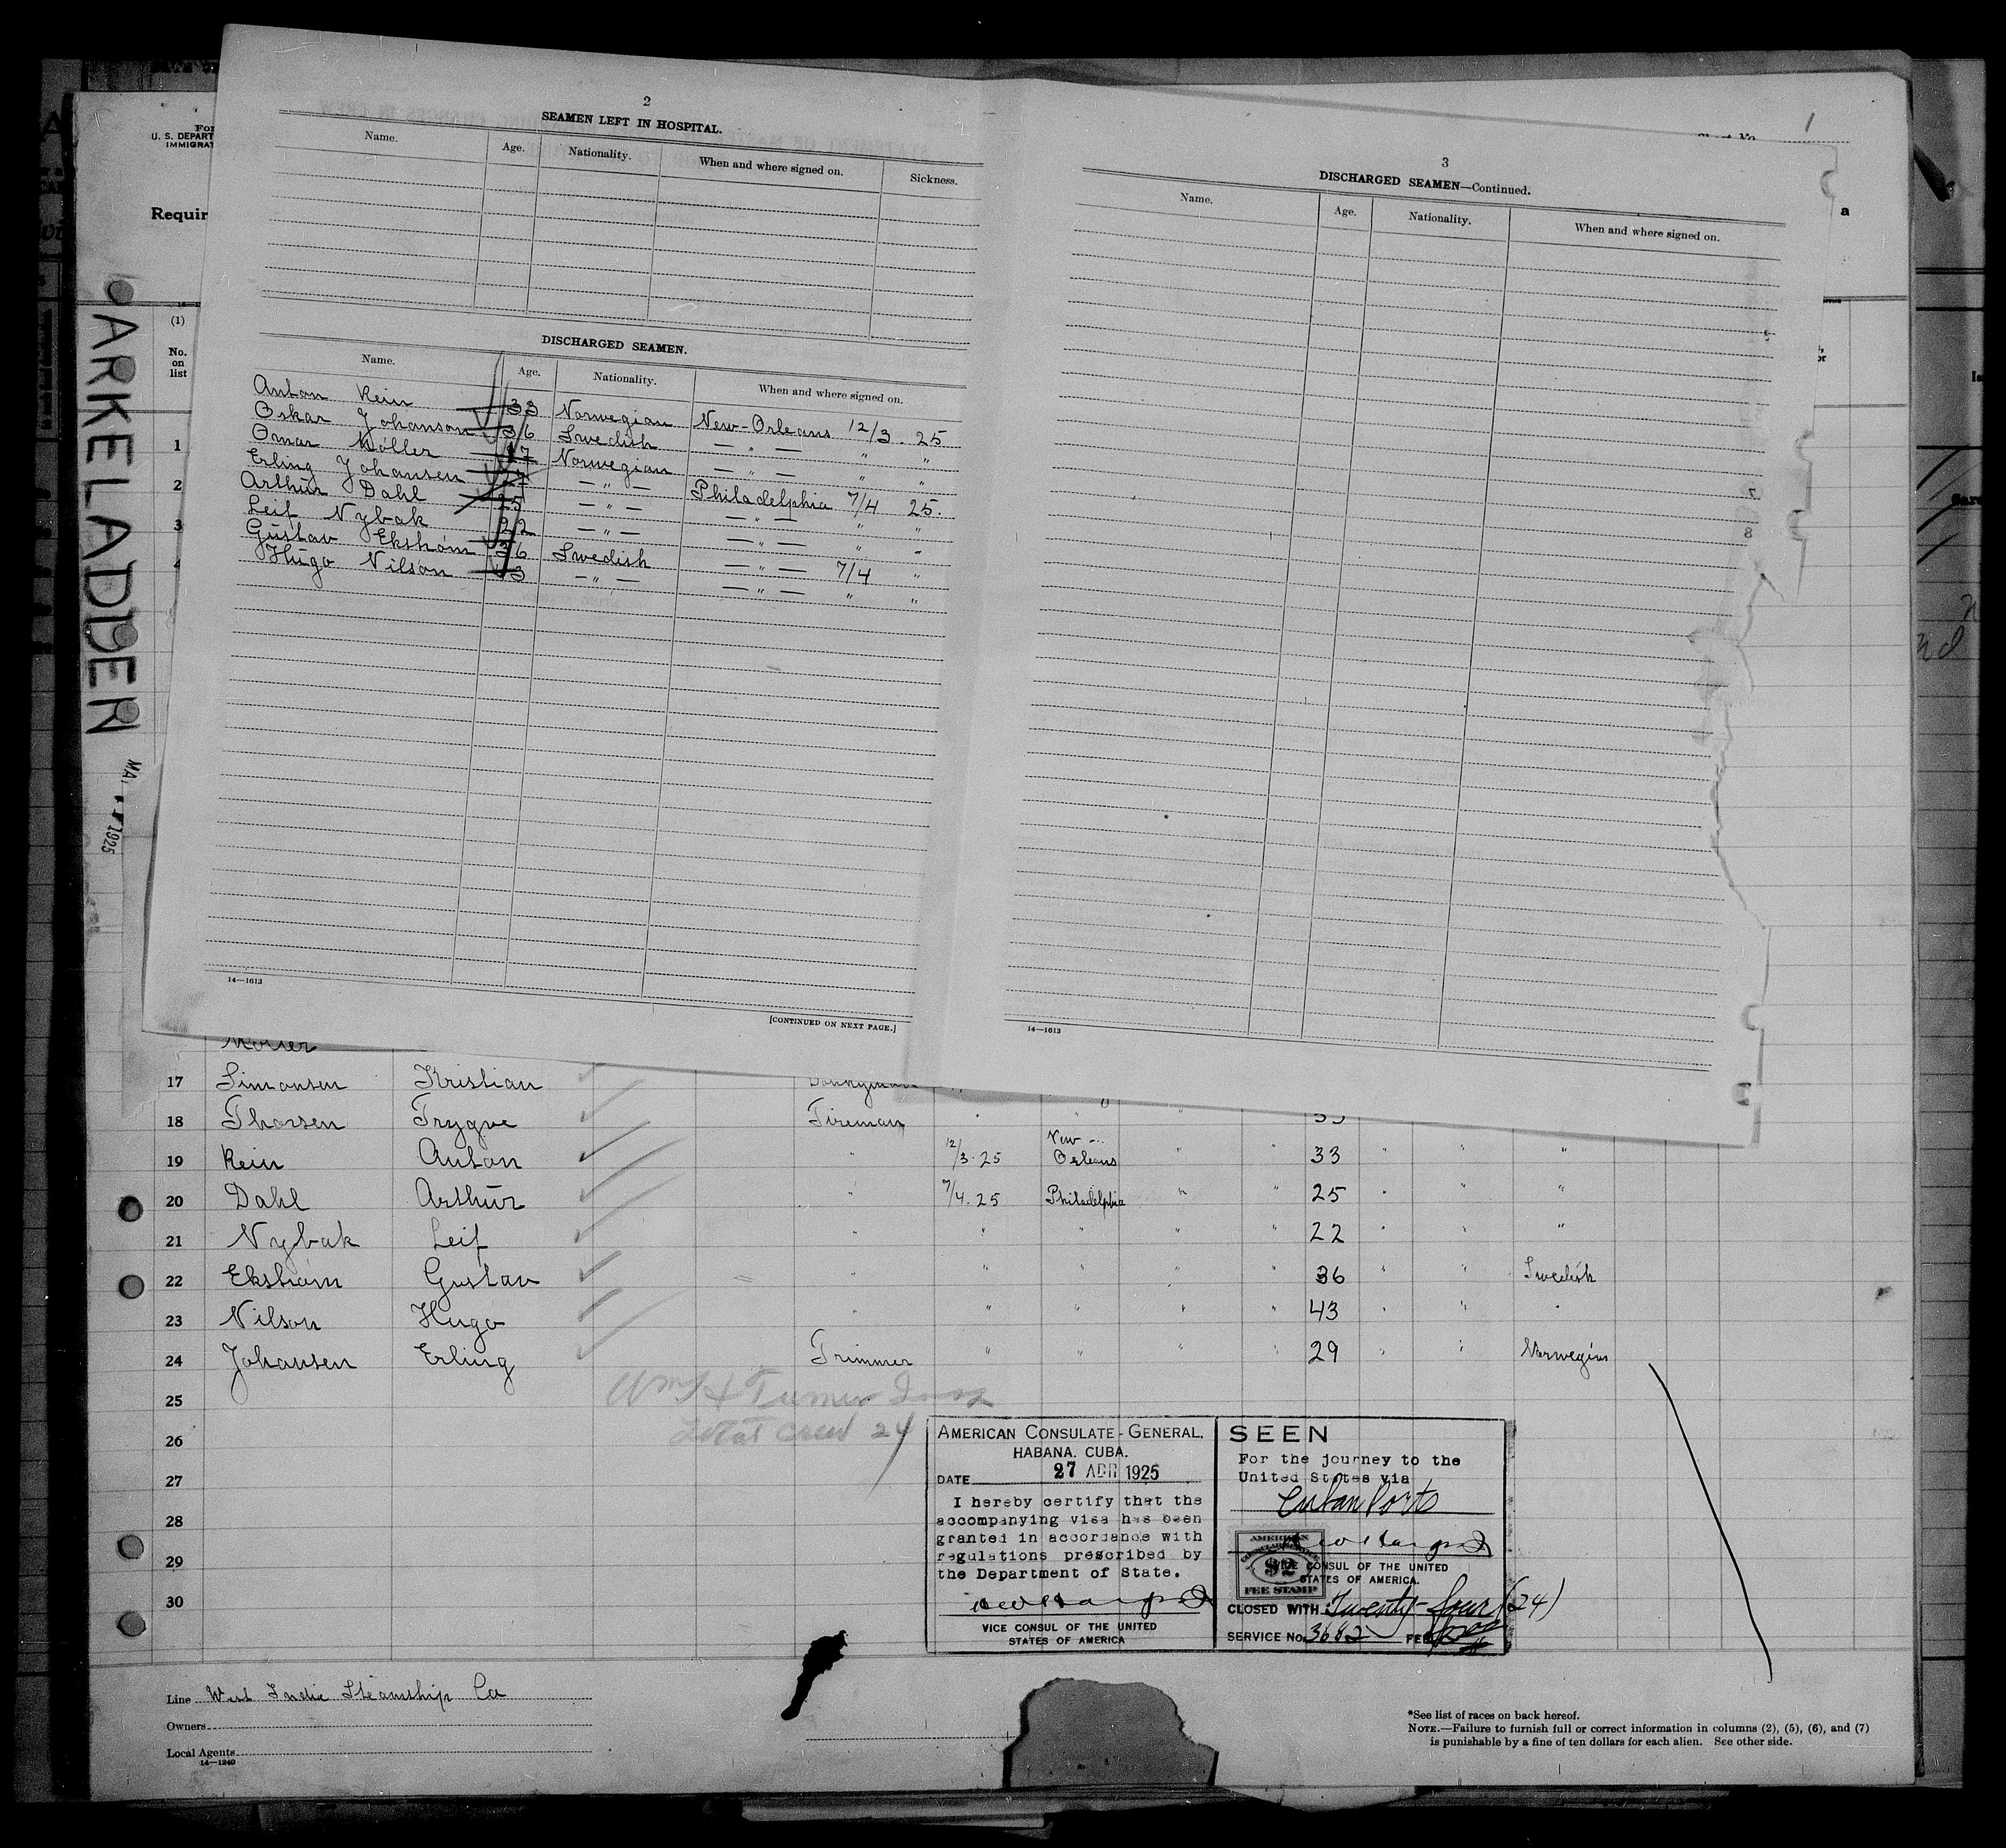 2
SEAMEN LEFT IN HOSPITAL.
Name. Age. Nationality. When and where signed on. Sickness.
DISCHARGED SEAMEN.
Name. Age. Nationality. When and where signed on.
Anton Rein 33 Norwegian New-Orleans 12/3. 25
Oskar Johanson 36 Swedish — " — " "
Omar Moller 17 Norwegian — " — " "
Erling Johansen — " — Philadelphia 7/4 25.
Arthur Dahl 25 — " — — " — " "
Leif Nybak 22 — " — — " — " "
Gustav Ekstrom 36 Swedish — " — 7/4 "
Hugo Nilson 43 — " — — " — " "
14—1613
[CONTINUED ON NEXT PAGE.]
1
3
DISCHARGED SEAMEN—Continued.
Name. Age. Nationality. When and where signed on.
7
8
14—1613
For
U. S. DEPART
IMMIGRAT
Requir
a
(1)
No.
on
list
1
2
3
4
ARKELADDEN
1925
17 Simonsen Kristian
18 Thorsen Trygve Fireman
19 Rein Anton " 12/3.25 New-Orleans " " 33 " " "
20 Dahl Arthur " 7/4.25 Philadelphia " " 25 " " "
21 Nybak Leif " " " " " 22 " " "
22 Ekstrom Gustav " " " " " 36 " " Swedish
23 Nilson Hugo " " " " " 43 " " "
24 Johansen Erling Trimmer " " " " 29 " " Norwegian
25
Wm H Turner
26
Total Crew 24
27
28
29
30
AMERICAN CONSULATE-GENERAL,
HABANA, CUBA.
DATE 27 APR 1925
I hereby certify that the
accompanying visa has been
granted in accordance with
regulations prescribed by
the Department of State.
VICE CONSUL OF THE UNITED
STATES OF AMERICA
SEEN
For the journey to the
United States via
Cuban Ports
AMERICAN
CONSULAR SERVICE
$2
FEE STAMP
VICE CONSUL OF THE UNITED
STATES OF AMERICA.
CLOSED WITH Twenty-four (24)
SERVICE No. 3682 FEE
Line West India Steamship Co
Owners
Local Agents
14—1240
*See list of races on back hereof.
NOTE.—Failure to furnish full or correct information in columns (2), (5), (6), and (7)
is punishable by a fine of ten dollars for each alien. See other side.